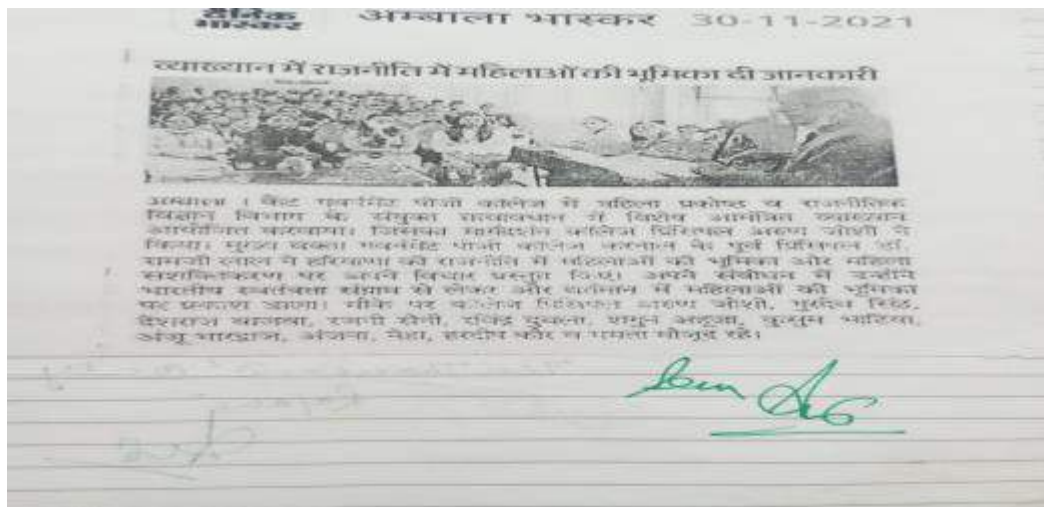 दैनिक भास्कर अम्बाला भास्कर 30-11-2021
व्याख्यान में राजनीति में महिलाओं की भूमिका दी जानकारी
अम्बाला । कैंट गवर्नमेंट पीजी कॉलेज में महिला प्रकोष्ठ व राजनीतिक
विज्ञान विभाग के संयुक्त तत्वावधान में विशेष आमंत्रित व्याख्यान
आयोजित करवाया। जिसका मार्गदर्शन कॉलेज प्रिंसिपल अरुण जोशी ने
किया। मुख्य वक्ता गवर्नमेंट पीजी कॉलेज करनाल के पूर्व प्रिंसिपल डॉ.
रामजी लाल ने हरियाणा की राजनीति में महिलाओं की भूमिका और महिला
सशक्तिकरण पर अपने विचार प्रस्तुत किए। अपने संबोधन में उन्होंने
भारतीय स्वतंत्रता संग्राम से लेकर और वर्तमान में महिलाओं की भूमिका
पर प्रकाश डाला। मौके पर कॉलेज प्रिंसिपल अरुण जोशी, गुरदेव सिंह,
देशराज बाजवा, रजनी सैनी, रविंद्र शुक्ला, शगुन आहूजा, कुसुम भाटिया,
अंजू भारद्वाज, अंजना, नेहा, हरदीप कौर व ममता मौजूद रहे।